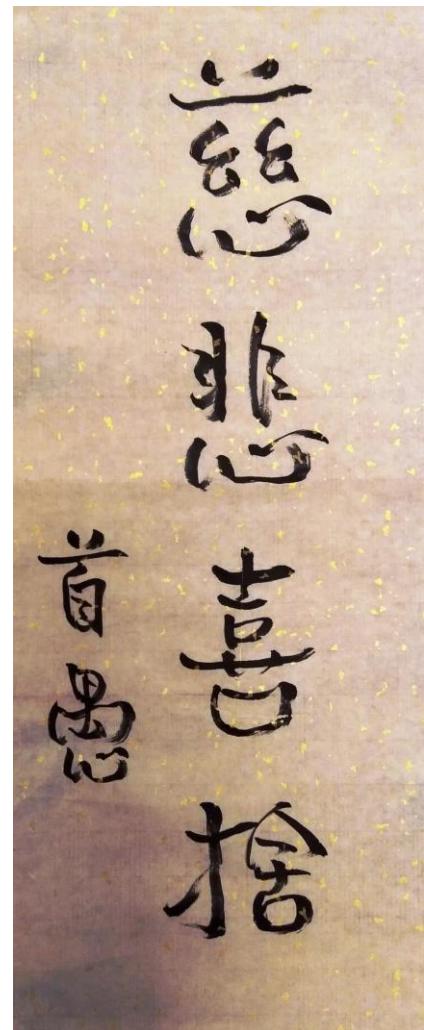 慈悲喜捨
首愚